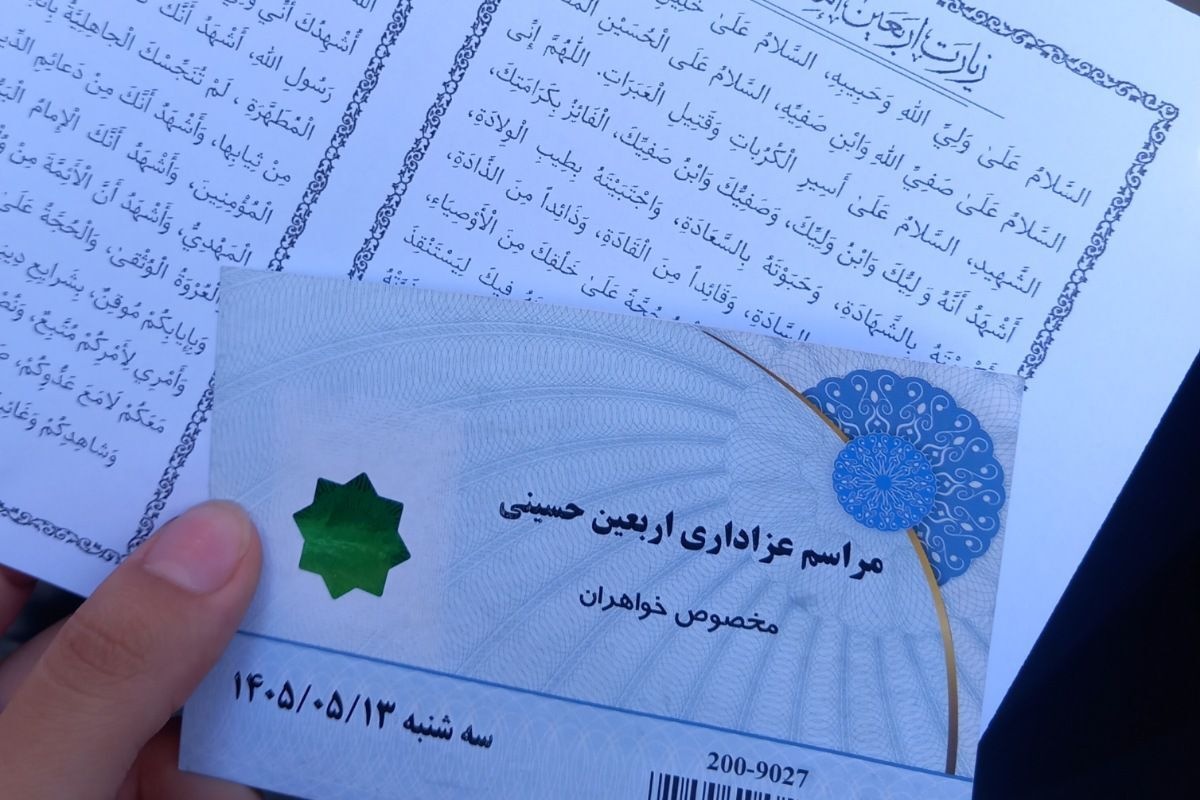 زیارت اربعین
السَّلامُ عَلىٰ وَلِيِّ اللهِ وَحَبِيبِهِ، السَّلامُ عَلىٰ
السَّلامُ عَلىٰ صَفِيِّ اللهِ وَابْنِ صَفِيِّهِ، السَّلامُ عَلَى الْحُسَيْنِ
الشَّهِيدِ، السَّلامُ عَلىٰ أَسِيرِ الْكُرُباتِ وَقَتِيلِ الْعَبَراتِ. اللّٰهُمَّ إِنِّى
أَشْهَدُ أَنَّهُ وَلِيُّكَ وَابْنُ وَلِيِّكَ، وَصَفِيُّكَ وَابْنُ صَفِيِّكَ، الْفَائِزُ بِكَرَامَتِكَ،
بِالشَّهَادَةِ، وَحَبَوْتَهُ بِالسَّعَادَةِ، وَاجْتَبَيْتَهُ بِطِيبِ الْوِلادَةِ،
السَّادَةِ، وَقَائِداً مِنَ الْقَادَةِ، وَذَائِداً مِنَ الذَّادَةِ،
حُجَّةً عَلىٰ خَلْقِكَ مِنَ الْأَوْصِيَاءِ،
فِيكَ لِيَسْتَنْقِذَ
أُشْهِدُكَ أَنِّي
رَسُولِ اللهِ، أَشْهَدُ أَنَّكَ
الْمُطَهَّرَةِ، لَمْ تُنَجِّسْكَ الْجاهِلِيَّةُ
مِنْ ثِيابِها، وَأَشْهَدُ أَنَّكَ مِنْ دَعائِمِ
الْمُؤْمِنِينَ، وَأَشْهَدُ أَنَّكَ الْإِمامُ
الْمَهْدِيُّ، وَأَشْهَدُ أَنَّ الْأَئِمَّةَ مِنْ
الْعُرْوَةُ الْوُثْقىٰ، وَالْحُجَّةُ عَلىٰ
وَبِإِيابِكُمْ مُوقِنٌ، بِشَرايِعِ دِينِي
وَأَمْرِي لِأَمْرِكُمْ مُتَّبِعٌ،
مَعَكُمْ لامَعَ عَدُوِّكُمْ،
وَشاهِدِكُمْ
مراسم عزاداری اربعین حسینی
مخصوص خواهران
سه شنبه ۱۴۰۵/۰۵/۱۳
200-9027